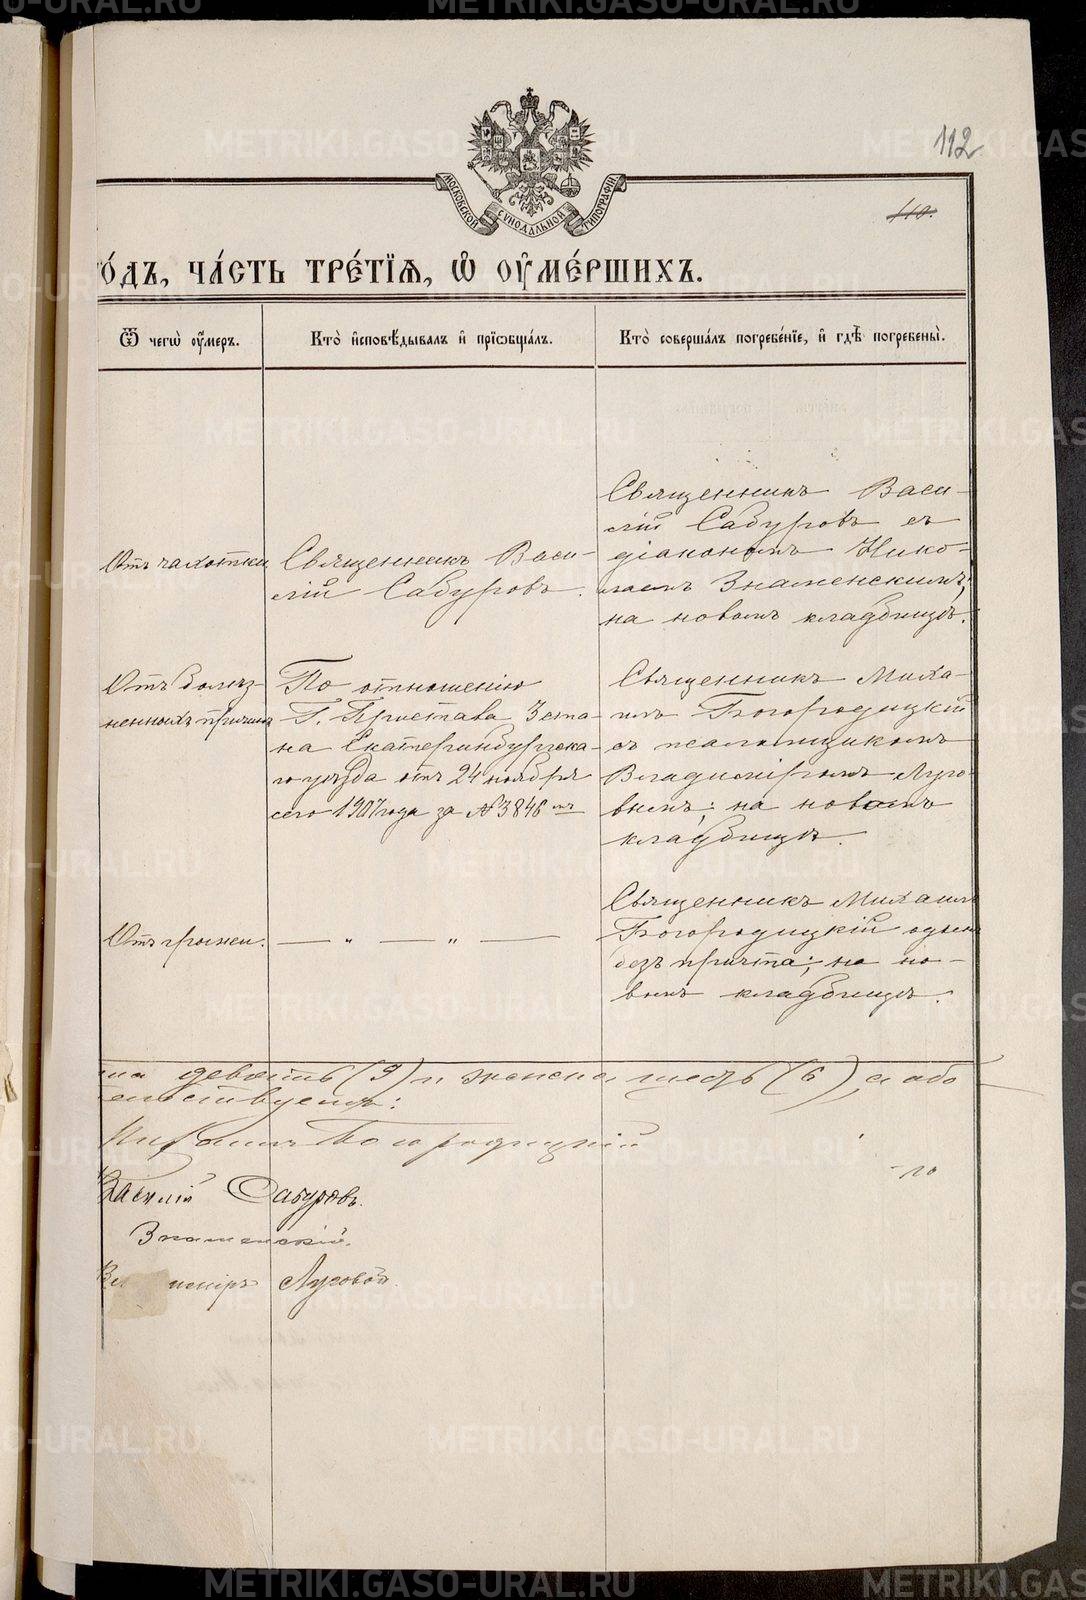 METRIKI.GASO-URAL.RU
112
110.
МОСКОВСКОЙ СѴНОДАЛЬНОЙ ТИПОГРАФІИ
го́дъ, ча́сть тре́тїѧ, ѽ оу҆ме́ршихъ.
Ѿ чегѡ̀ оу҆́меръ.
Кто̀ и҆сповѣ́дывалъ и҆ прїѡбща́лъ.
Кто̀ соверша́лъ погребе́нїе, и҆ гдѣ̀ погребены̀.
Отъ чахотки
Священникъ Васи-
лій Сабуровъ.
Священникъ Васи-
лій Сабуровъ съ
діакономъ Нико-
лаемъ Знаменскимъ,
на новомъ кладбищѣ.
Отъ болѣз-
ненныхъ причинъ
По отношенію
Г. Пристава 3 ста-
на Екатеринбургска-
го уѣзда отъ 24 ноября
сего 1907 года за № 3846мъ
Священникъ Миха-
илъ Богородицкій
съ псаломщикомъ
Владиміромъ Луго-
вымъ; на новомъ
кладбищѣ.
Отъ грыжи.
— „ — „ —
Священникъ Михаилъ
Богородицкій одинъ
безъ причта; на но-
вомъ кладбищѣ.
девять (9) и женска шесть (6), а обо
Михаилъ Богородицкій
Василій Сабуровъ.
Знаменскій.
Луговой.